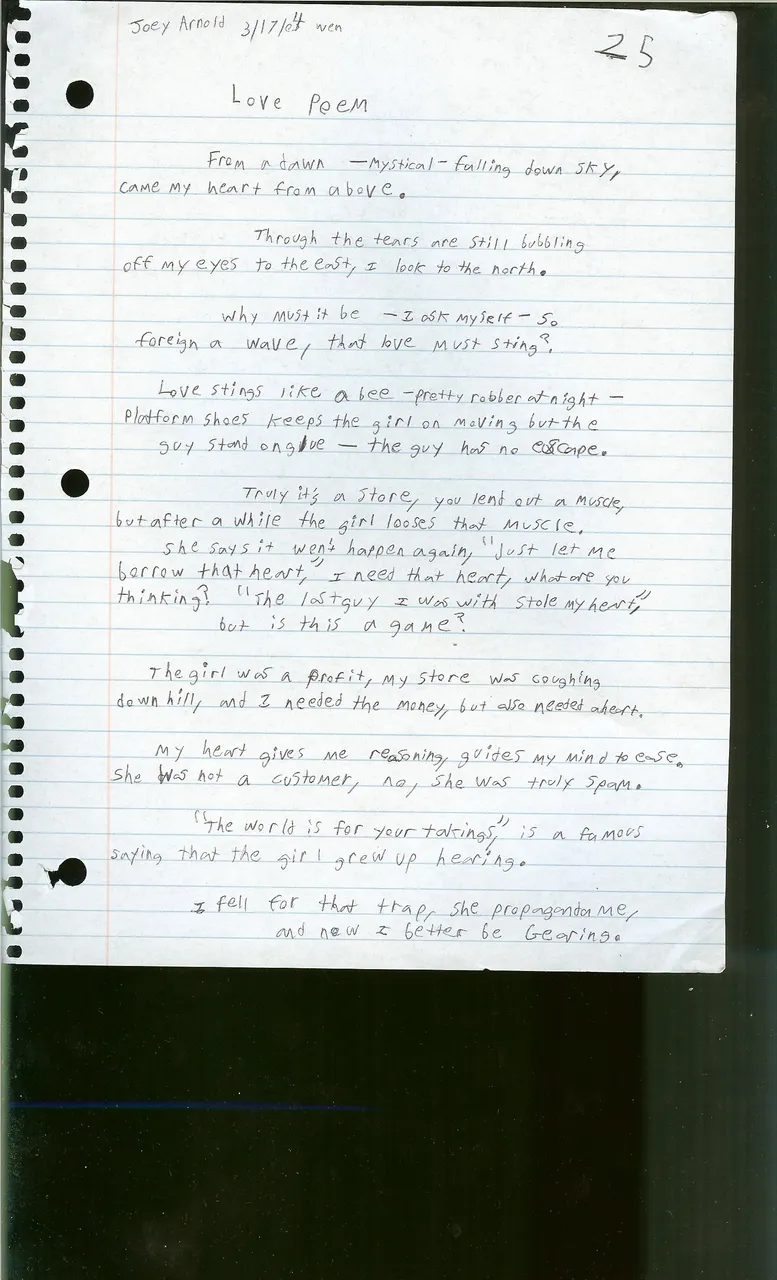 Joey Arnold 3/17/04 wen
25
Love Poem
From a dawn - Mystical - falling down sky,
came my heart from above.
Through the tears are still bubbling
off my eyes to the east, I look to the north.
Why must it be - I ask myself - so
foreign a wave, that love must sting?
Love stings like a bee - pretty robber at night -
Platform shoes keeps the girl on moving but the
guy stand on glue - the guy has no escape.
Truly it's a store, you lend out a muscle,
but after a while the girl looses that muscle.
She says it won't happen again, "Just let me
borrow that heart," I need that heart, what are you
thinking? "The last guy I was with stole my heart,"
but is this a game?
The girl was a profit, my store was coughing
down hill, and I needed the money, but also needed a heart.
My heart gives me reasoning, guides my mind to ease.
She was not a customer, no, she was truly spam.
"The world is for your takings," is a famous
saying that the girl grew up hearing.
I fell for that trap, she propaganda me,
and now I better be Gearing.